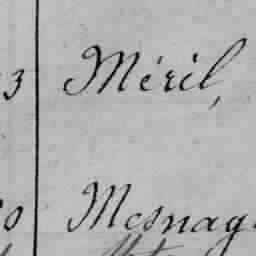 3 Méril,
0 Mesnag